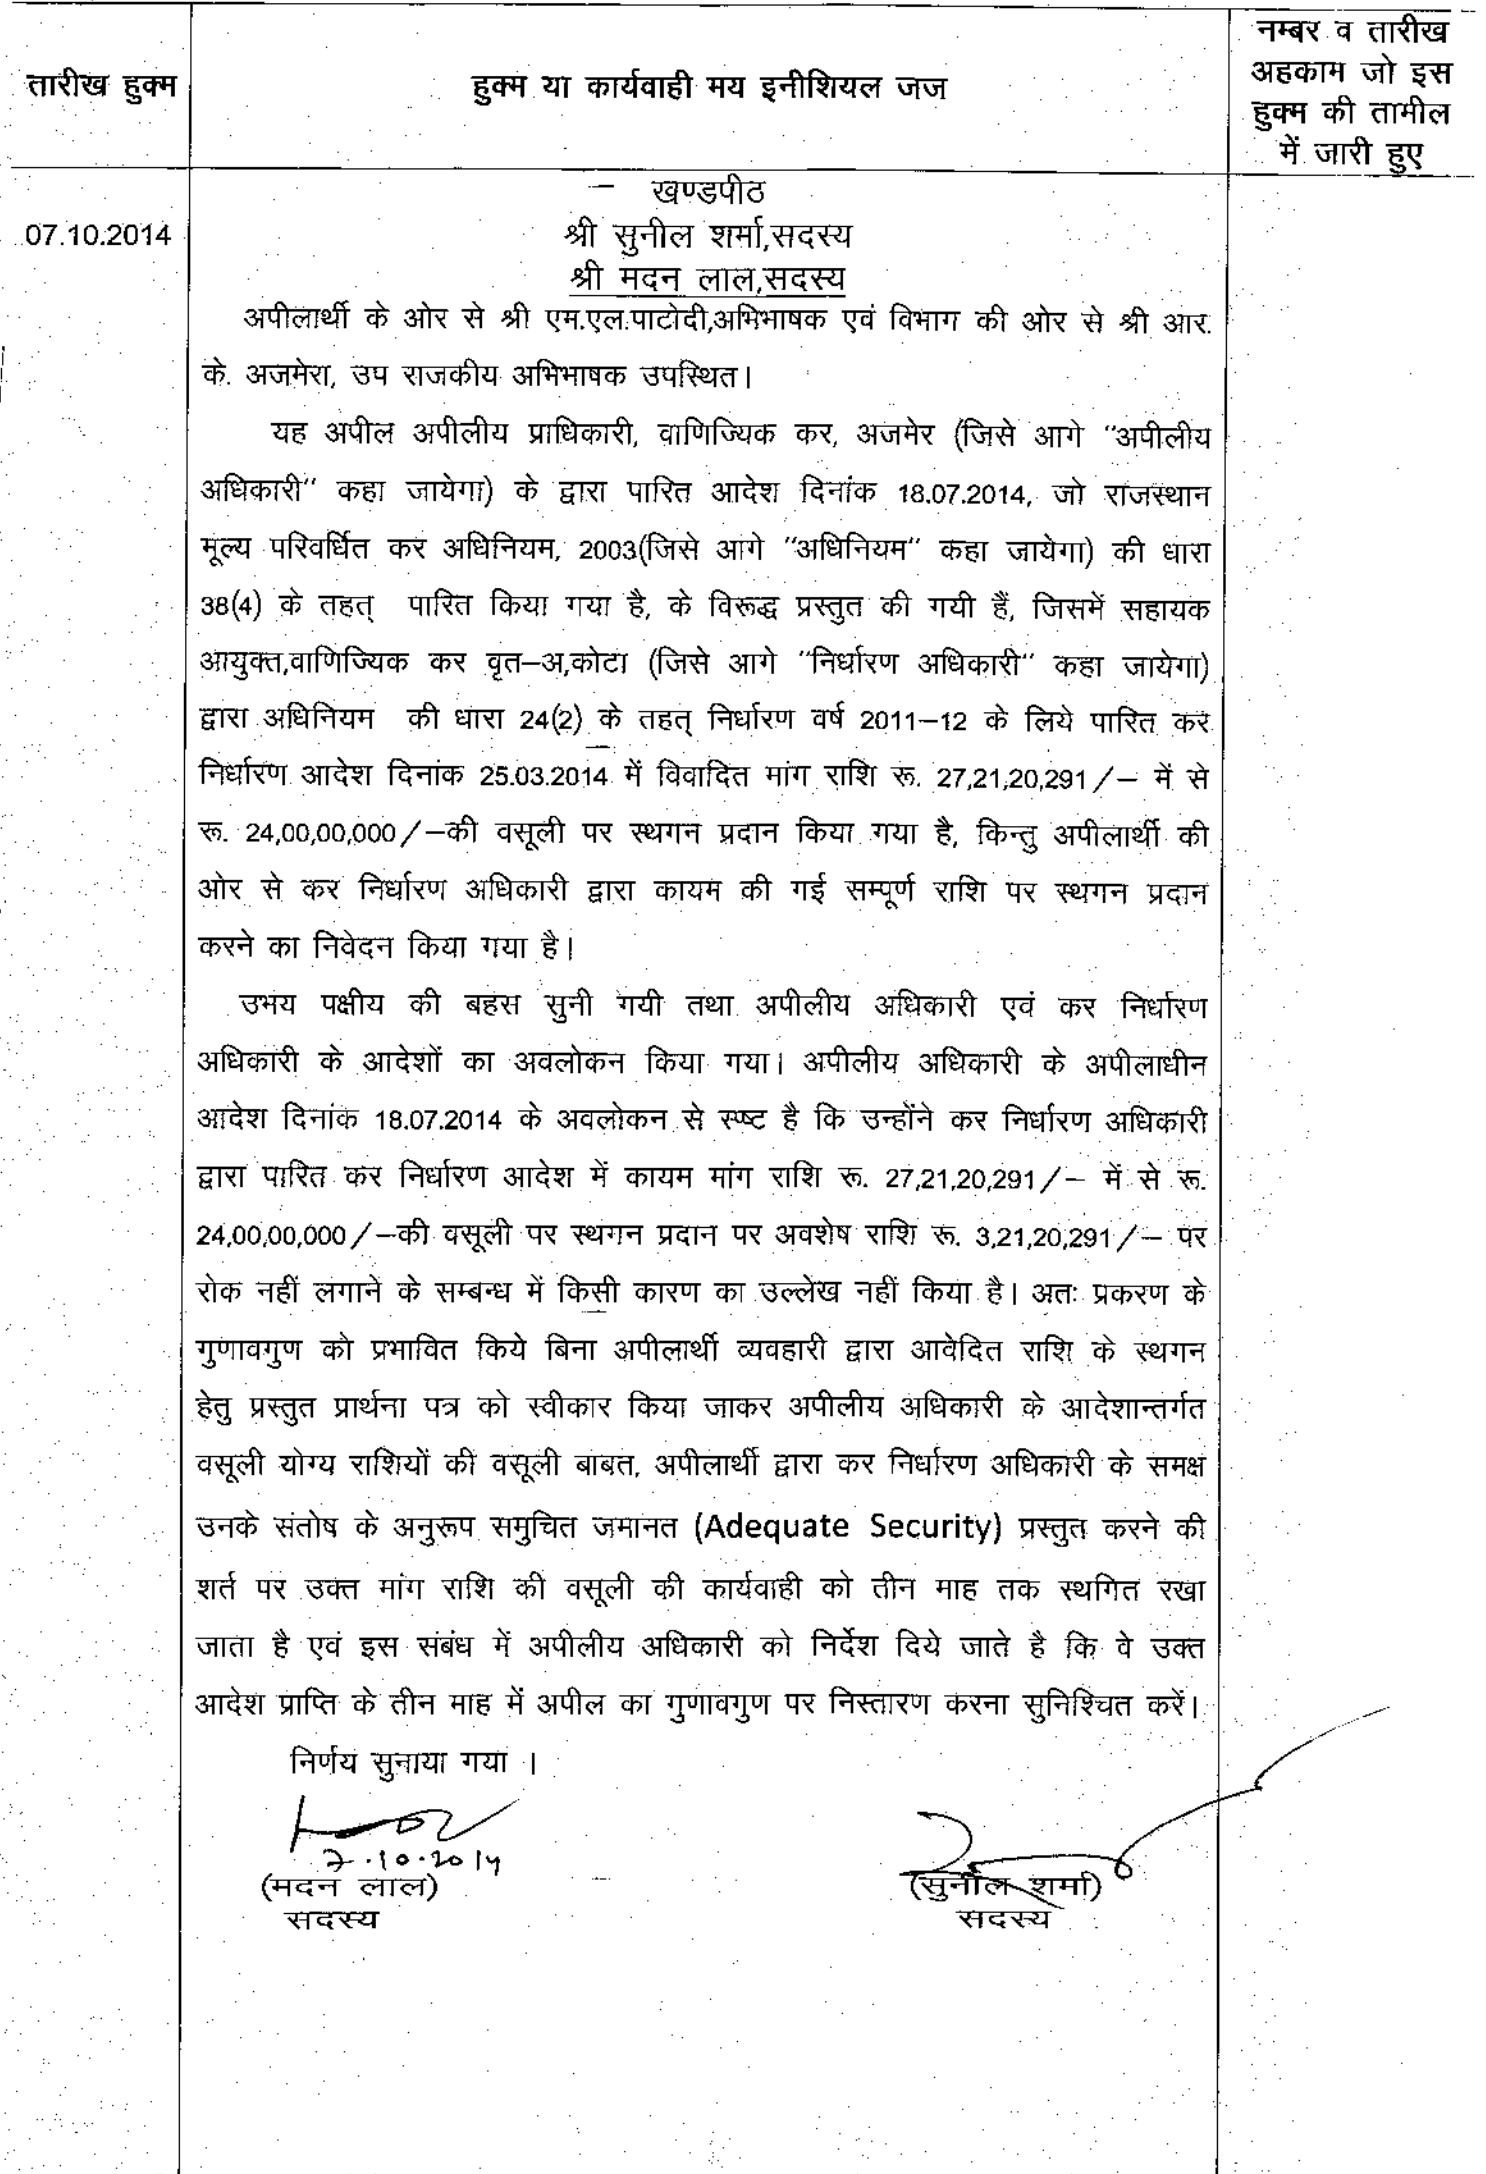 तारीख हुक्म
हुक्म या कार्यवाही मय इनीशियल जज
नम्बर व तारीख
अहकाम जो इस
हुक्म की तामील
में जारी हुए
07.10.2014
– खण्डपीठ
श्री सुनील शर्मा,सदस्य
श्री मदन लाल,सदस्य
अपीलार्थी के ओर से श्री एम.एल.पाटोदी,अभिभाषक एवं विभाग की ओर से श्री आर.
के. अजमेरा, उप राजकीय अभिभाषक उपस्थित।
यह अपील अपीलीय प्राधिकारी, वाणिज्यिक कर, अजमेर (जिसे आगे "अपीलीय
अधिकारी" कहा जायेगा) के द्वारा पारित आदेश दिनांक 18.07.2014, जो राजस्थान
मूल्य परिवर्धित कर अधिनियम, 2003(जिसे आगे "अधिनियम" कहा जायेगा) की धारा
38(4) के तहत् पारित किया गया है, के विरूद्ध प्रस्तुत की गयी हैं, जिसमें सहायक
आयुक्त,वाणिज्यिक कर वृत–अ,कोटा (जिसे आगे "निर्धारण अधिकारी" कहा जायेगा)
द्वारा अधिनियम की धारा 24(2) के तहत् निर्धारण वर्ष 2011–12 के लिये पारित कर
निर्धारण आदेश दिनांक 25.03.2014 में विवादित मांग राशि रू. 27,21,20,291/– में से
रू. 24,00,00,000/–की वसूली पर स्थगन प्रदान किया गया है, किन्तु अपीलार्थी की
ओर से कर निर्धारण अधिकारी द्वारा कायम की गई सम्पूर्ण राशि पर स्थगन प्रदान
करने का निवेदन किया गया है।
उभय पक्षीय की बहस सुनी गयी तथा अपीलीय अधिकारी एवं कर निर्धारण
अधिकारी के आदेशों का अवलोकन किया गया। अपीलीय अधिकारी के अपीलाधीन
आदेश दिनांक 18.07.2014 के अवलोकन से स्पष्ट है कि उन्होंने कर निर्धारण अधिकारी
द्वारा पारित कर निर्धारण आदेश में कायम मांग राशि रू. 27,21,20,291/– में से रू.
24,00,00,000/–की वसूली पर स्थगन प्रदान पर अवशेष राशि रू. 3,21,20,291/– पर
रोक नहीं लगाने के सम्बन्ध में किसी कारण का उल्लेख नहीं किया है। अतः प्रकरण के
गुणावगुण को प्रभावित किये बिना अपीलार्थी व्यवहारी द्वारा आवेदित राशि के स्थगन
हेतु प्रस्तुत प्रार्थना पत्र को स्वीकार किया जाकर अपीलीय अधिकारी के आदेशान्तर्गत
वसूली योग्य राशियों की वसूली बाबत, अपीलार्थी द्वारा कर निर्धारण अधिकारी के समक्ष
उनके संतोष के अनुरूप समुचित जमानत (Adequate Security) प्रस्तुत करने की
शर्त पर उक्त मांग राशि की वसूली की कार्यवाही को तीन माह तक स्थगित रखा
जाता है एवं इस संबंध में अपीलीय अधिकारी को निर्देश दिये जाते है कि वे उक्त
आदेश प्राप्ति के तीन माह में अपील का गुणावगुण पर निस्तारण करना सुनिश्चित करें।
निर्णय सुनाया गया ।
7.10.2014
(मदन लाल)
सदस्य
(सुनील शर्मा)
सदस्य